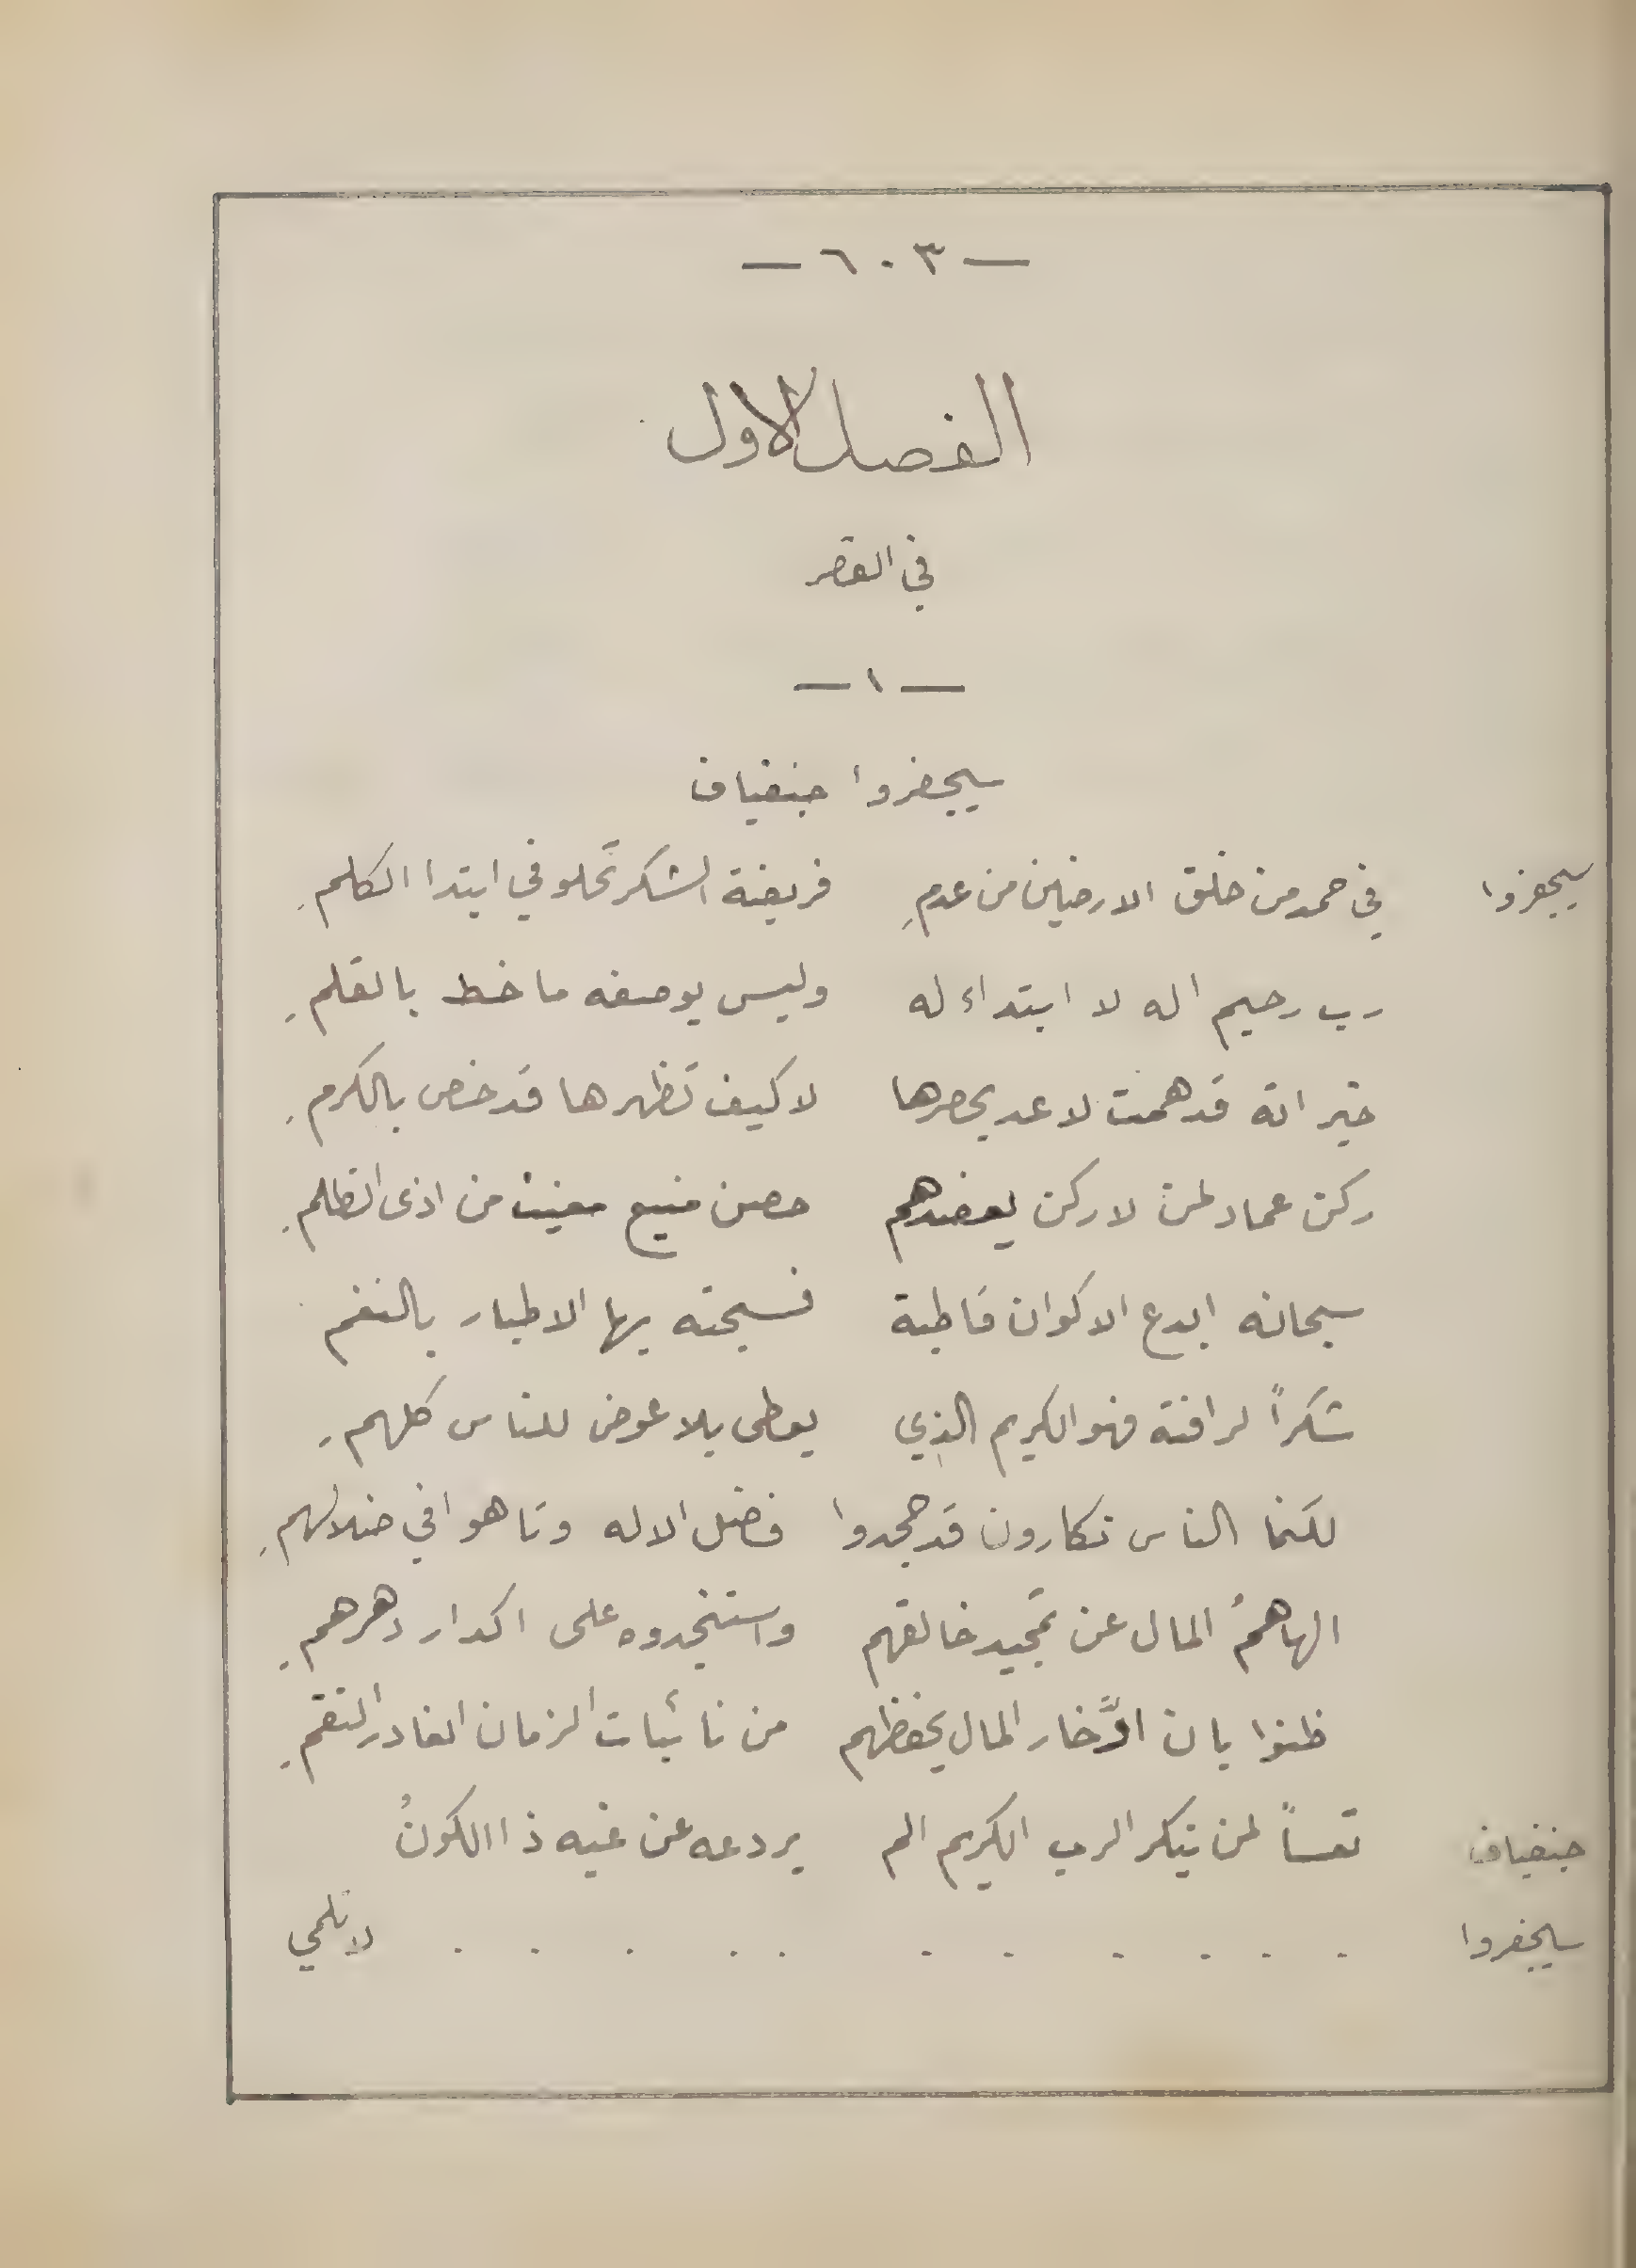 — ٦٠٣ —
الفصل الاول
في القصر
— ١ —
سيجفروا جنفياف
سيجفروا في حمد من خلق الارضين من عدمِ فريضة الشكر تحلو في ابتدا الكلمِ
رب رحيم اله لا ابتداء له وليس يوصفه ما خط بالقلمِ
خيراته قد همت لا عد يحصرها لا كيف تظهرها قد خص بالكرمِ
ركن عماد لمن لا ركن يعضدهم حصن منيع مغيث من اذى الظلمِ
سبحانه ابدع الاكوان قاطبة فسبحته بها الاطيار بالنغم
شكراً لرافته فهو الكريم الذي يعطي بلا عوض للناس كلهمِ
لكنما الناس نكارون قد جحدوا فضل الاله وتاهوا في ضلالهمِ
الهاهمُ المال عن تمجيد خالقهم واستنجدوه على اكدار دهرهمِ
ظنوا بان ادَّخار المال يحفظهم من نائبات الزمان الغادر النقمِ
جنفياف تعساً لمن ينكر الرب الكريم الم يردعه عن غيه ذا الكونُ
سيجفروا . . . . . . . . . . . لا تلمي